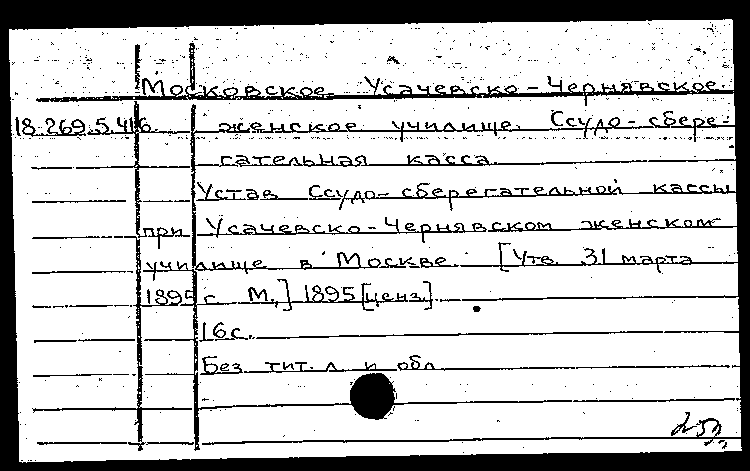 Московское Усачевско-Чернявское
18.269.5.416. женское училище. Ссудо-сбере-
гательная касса.
Устав Ссудо-сберегательной кассы
при Усачевско-Чернявском женском
училище в Москве. [Утв. 31 марта
1895 г. М.,] 1895 [ценз.].
16 с.
Без тит. л. и обл.